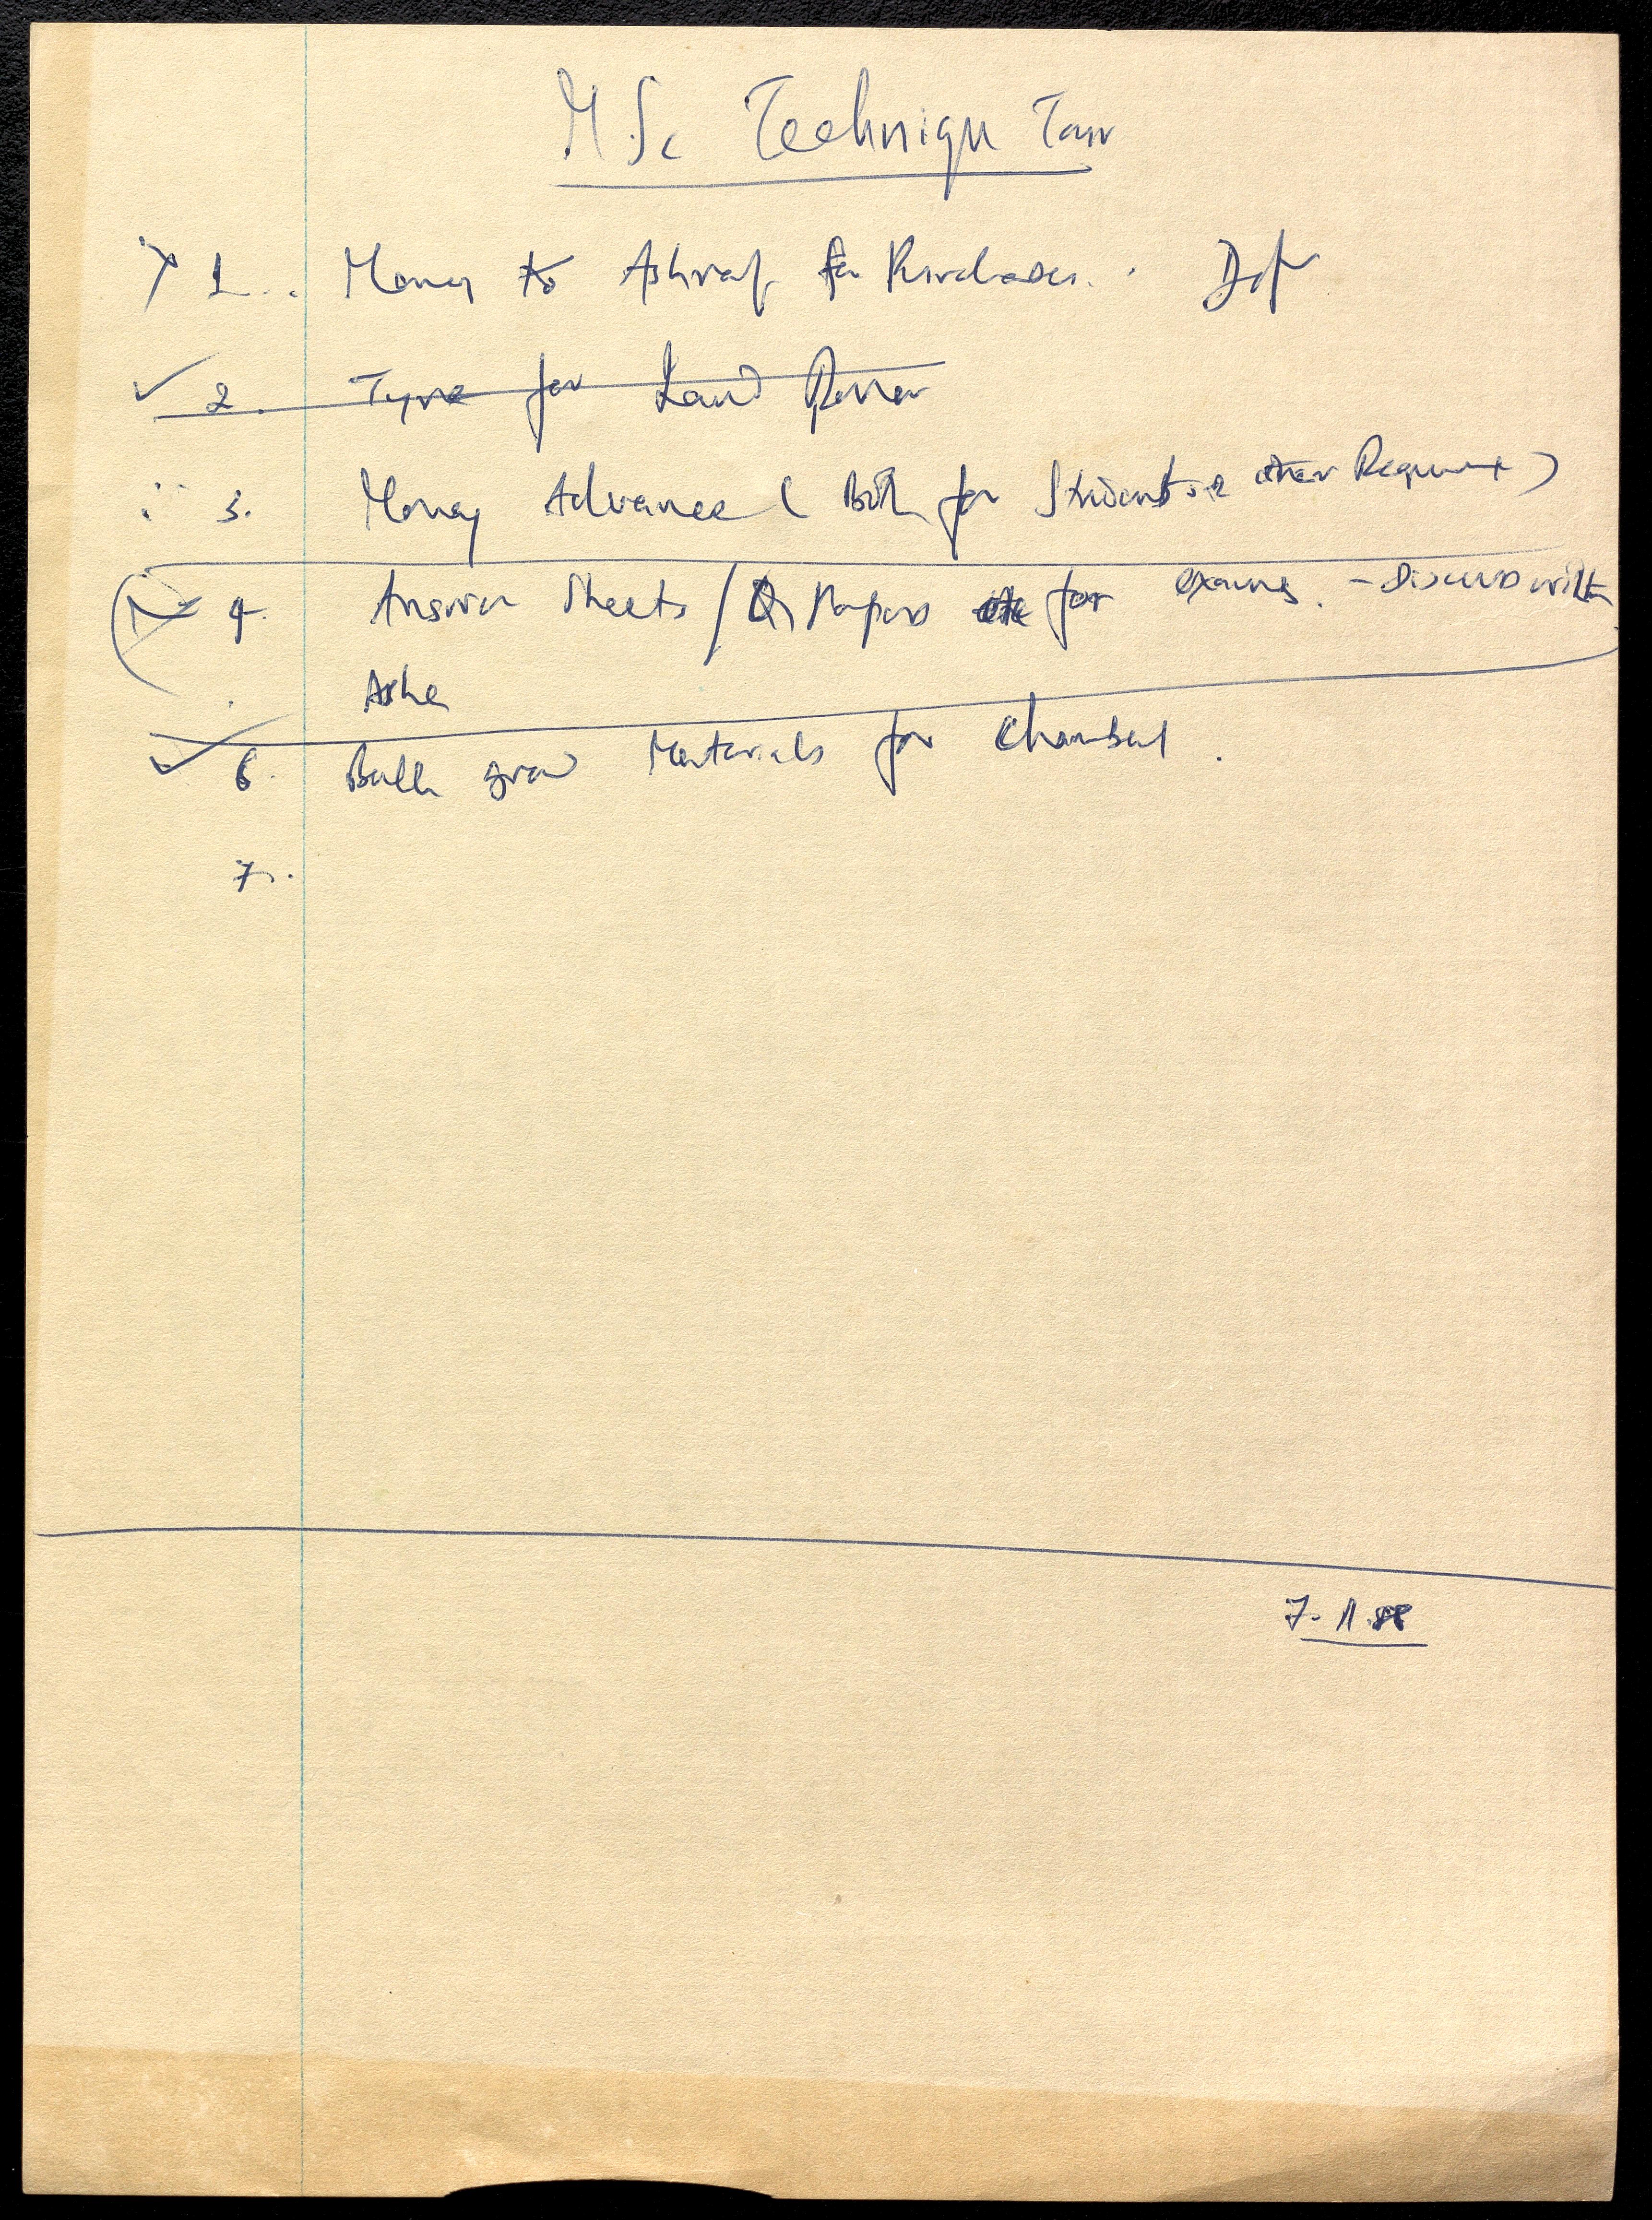 MSc Techniqu Tour
1. Money to Ashraf for Purchases.
2. Tyre for Land Rover
3. Money Advance (Both for Students & other Requirement)
4. Answer Sheets / Q Papers etc for exams. - Discuss with
Ashe
6. Bulk Materials for Chambal.
7.
7. 1. 88